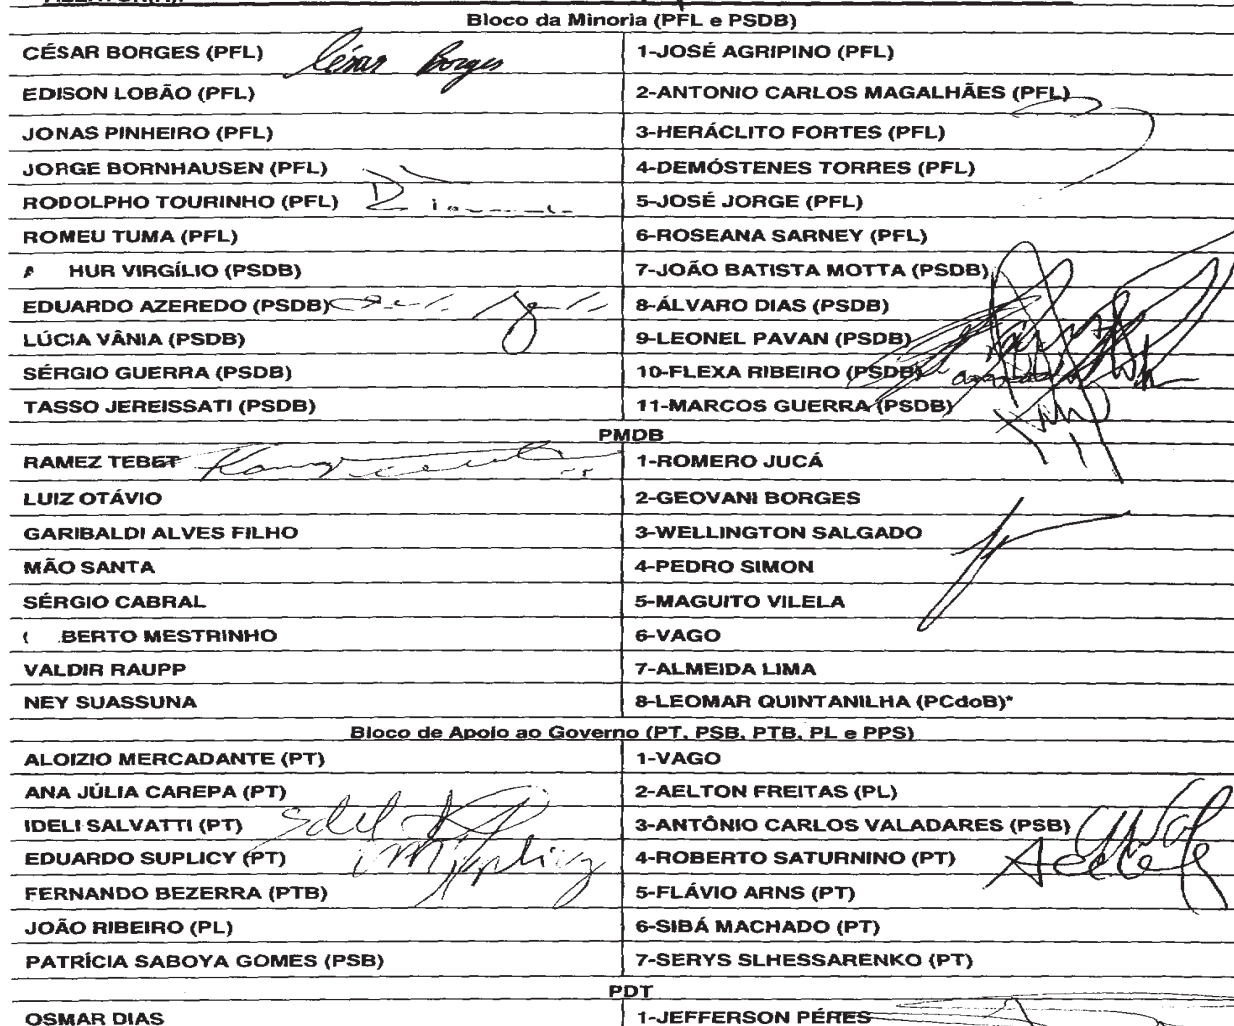 Bloco da Minoria (PFL e PSDB)
CÉSAR BORGES (PFL) César Borges 1-JOSÉ AGRIPINO (PFL)
EDISON LOBÃO (PFL) 2-ANTONIO CARLOS MAGALHÃES (PFL)
JONAS PINHEIRO (PFL) 3-HERÁCLITO FORTES (PFL)
JORGE BORNHAUSEN (PFL) 4-DEMÓSTENES TORRES (PFL)
RODOLPHO TOURINHO (PFL) 5-JOSÉ JORGE (PFL)
ROMEU TUMA (PFL) 6-ROSEANA SARNEY (PFL)
HUR VIRGÍLIO (PSDB) 7-JOÃO BATISTA MOTTA (PSDB)
EDUARDO AZEREDO (PSDB) 8-ÁLVARO DIAS (PSDB)
LÚCIA VÂNIA (PSDB) 9-LEONEL PAVAN (PSDB)
SÉRGIO GUERRA (PSDB) 10-FLEXA RIBEIRO (PSDB)
TASSO JEREISSATI (PSDB) 11-MARCOS GUERRA (PSDB)
PMDB
RAMEZ TEBET 1-ROMERO JUCÁ
LUIZ OTÁVIO 2-GEOVANI BORGES
GARIBALDI ALVES FILHO 3-WELLINGTON SALGADO
MÃO SANTA 4-PEDRO SIMON
SÉRGIO CABRAL 5-MAGUITO VILELA
BERTO MESTRINHO 6-VAGO
VALDIR RAUPP 7-ALMEIDA LIMA
NEY SUASSUNA 8-LEOMAR QUINTANILHA (PCdoB)*
Bloco de Apoio ao Governo (PT, PSB, PTB, PL e PPS)
ALOIZIO MERCADANTE (PT) 1-VAGO
ANA JÚLIA CAREPA (PT) 2-AELTON FREITAS (PL)
IDELI SALVATTI (PT) 3-ANTÔNIO CARLOS VALADARES (PSB)
EDUARDO SUPLICY (PT) 4-ROBERTO SATURNINO (PT)
FERNANDO BEZERRA (PTB) 5-FLÁVIO ARNS (PT)
JOÃO RIBEIRO (PL) 6-SIBÁ MACHADO (PT)
PATRÍCIA SABOYA GOMES (PSB) 7-SERYS SLHESSARENKO (PT)
PDT
OSMAR DIAS 1-JEFFERSON PÉRES